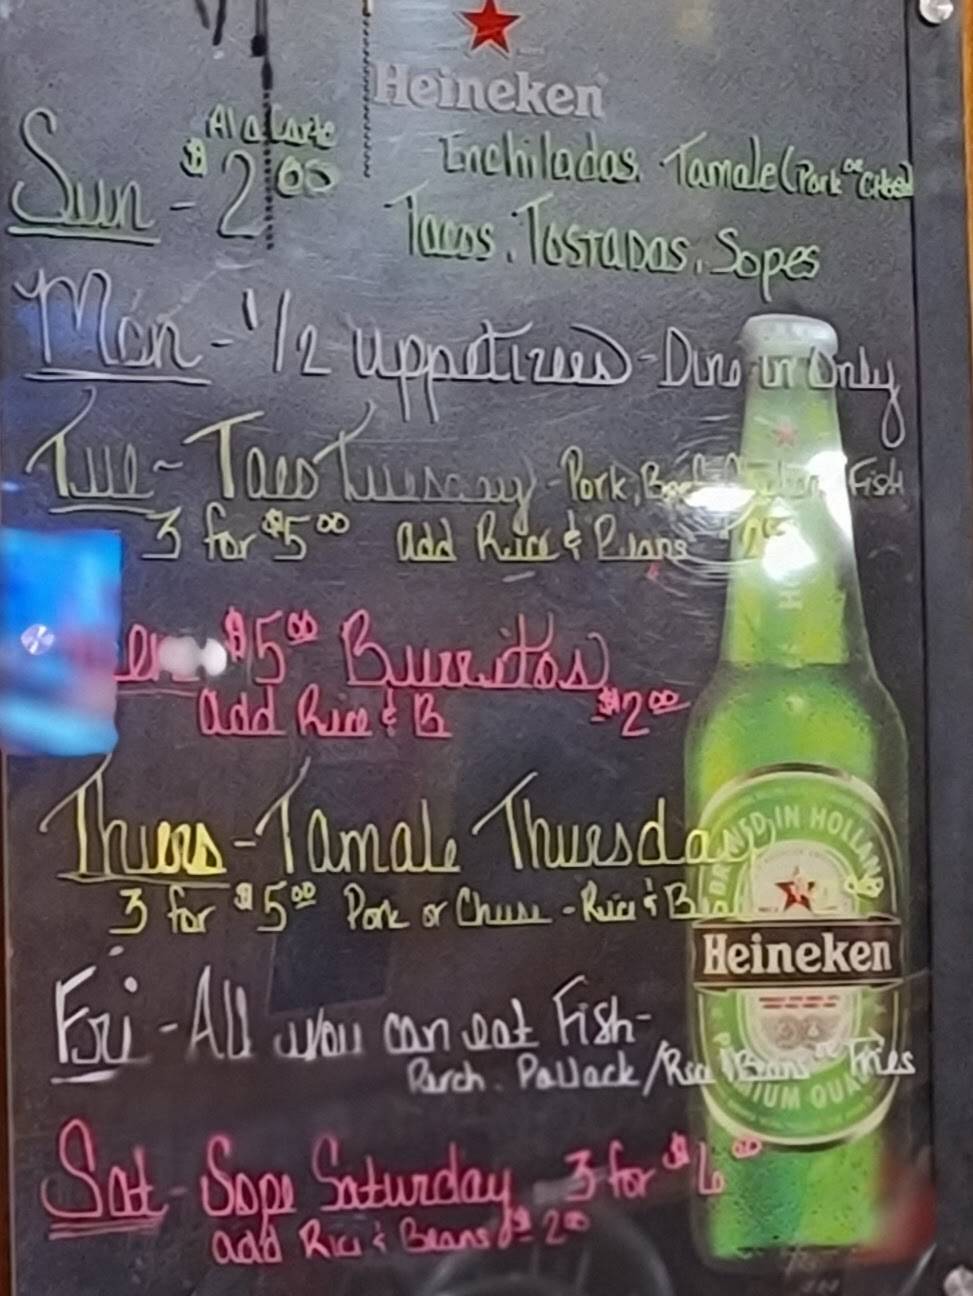 Heineken
Al a Carte
Sun - $2.00 Enchiladas. Tamale (Pork or Cheese)
Tacos. Tostadas. Sopes
Mon - 1/2 appetizers - Dine in Only
Tue - Taco Tuesday - Pork, Beef, Fish
3 for $5.00 add Rice & Beans
$5.00 Burritos
add Rice & B $2.00
Thurs - Tamale Thursday
3 for $5.00 Pork or Cheese - Rice & Beans
BREWED IN HOLLAND
Heineken
Fri - All you can eat Fish -
Perch. Pollack / Rice Beans or Fries
PREMIUM QUALITY
Sat - Sope Saturday 3 for $6.00
add Rice & Beans $2.00